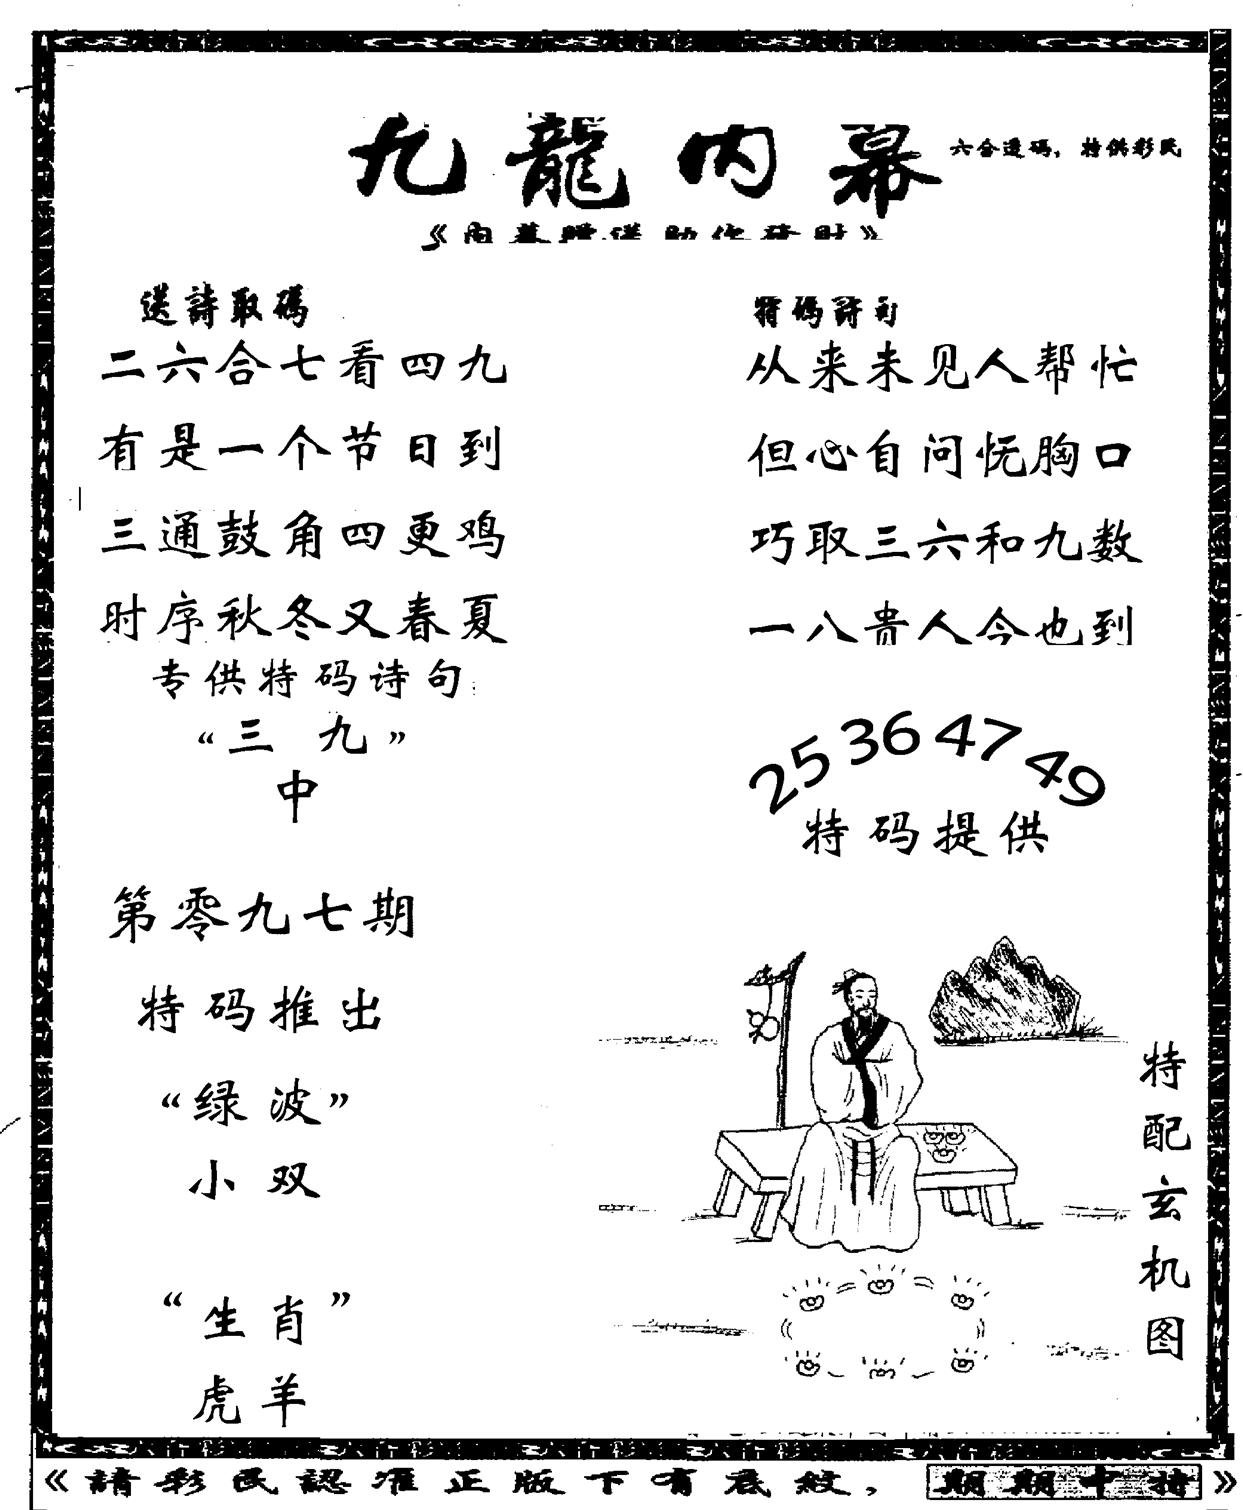 九龍内幕
六合透码，特供彩民
《内幕贈送 助你發財》
送詩取碼
二六合七看四九
有是一个节日到
三通鼓角四更鸡
时序秋冬又春夏
专供特码诗句:
“三 九”
中
第零九七期
特码推出
“绿波”
小双
“生肖”
虎羊
特碼詩句
从来未见人帮忙
但心自问怃胸口
巧取三六和九数
一八贵人今也到
25 36 47 49
特码提供
特配玄机图
《請彩民認准正版下有底紋，期期中特》